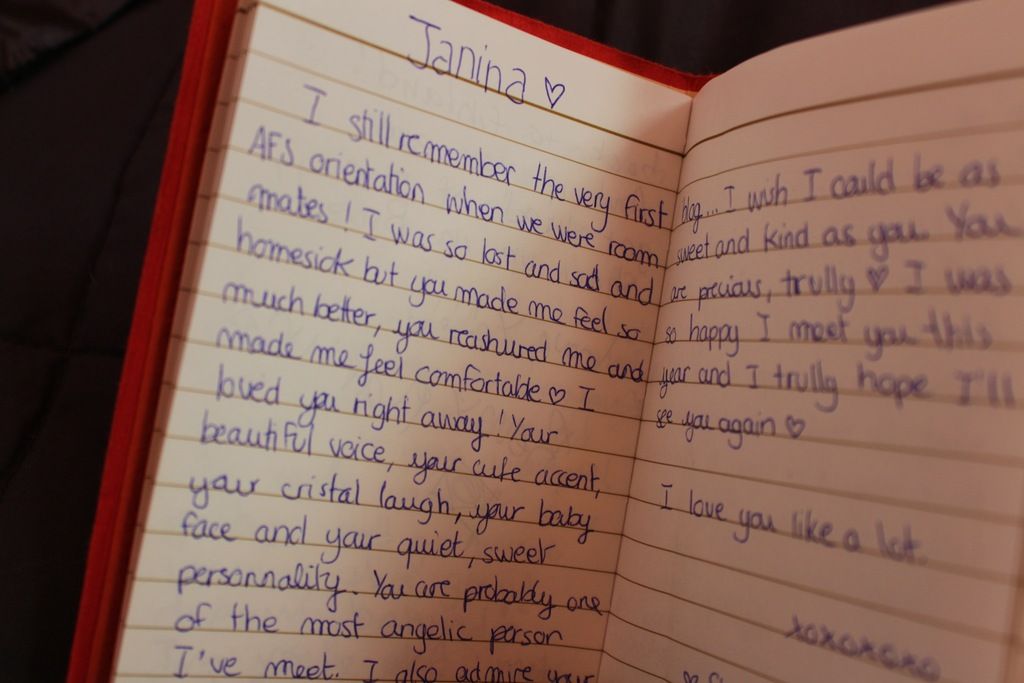 Janina ♡
I still remember the very first
AFS orientation when we were room
mates! I was so lost and sad and
homesick but you made me feel so
much better, you reashured me and
made me feel comfortable ♡ I
loved you right away! Your
beautiful voice, your cute accent,
your cristal laugh, your baby
face and your quiet, sweet
personnality. You are probably one
of the most angelic person
I've meet. I also admire your
blog... I wish I could be as
sweet and kind as you. You
are precious, trully ♡ I was
so happy I meet you this
year and I trully hope I'll
see you again ♡
I love you like a lot.
xoxoxoxo